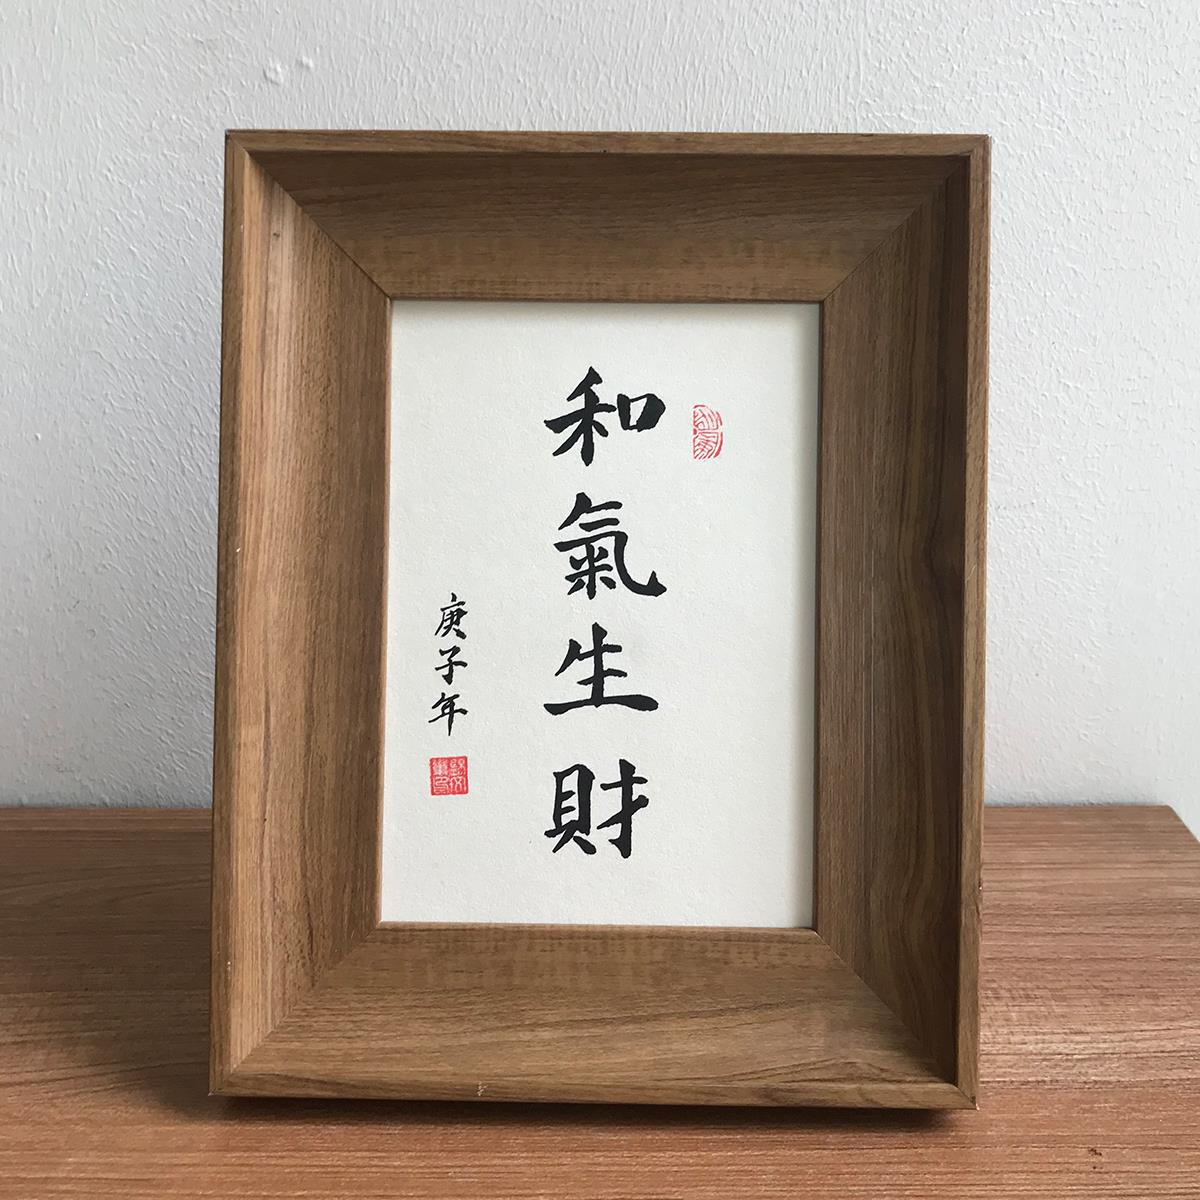 和氣生財
庚子年